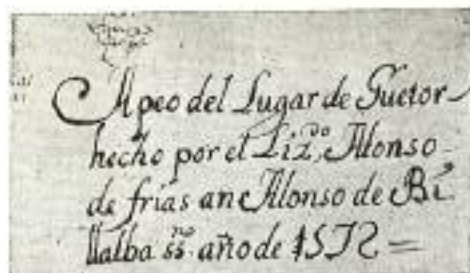 Apeo del Lugar de Guetor
hecho por el Lizdo. Alonso
de frias an Alonso de Bi
llalba ssno. año de 1572 =